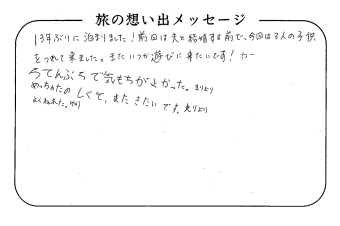 旅の想い出メッセージ
13年ぶりに泊まりました！前回は夫と結婚する前で、今回は3人の子供
をつれて来ました。またいつか遊びに来たいです！
ろてんぶろで気もちがよかった。まりより
めっちゃたのしくて、またきたいです。
よくねれた。